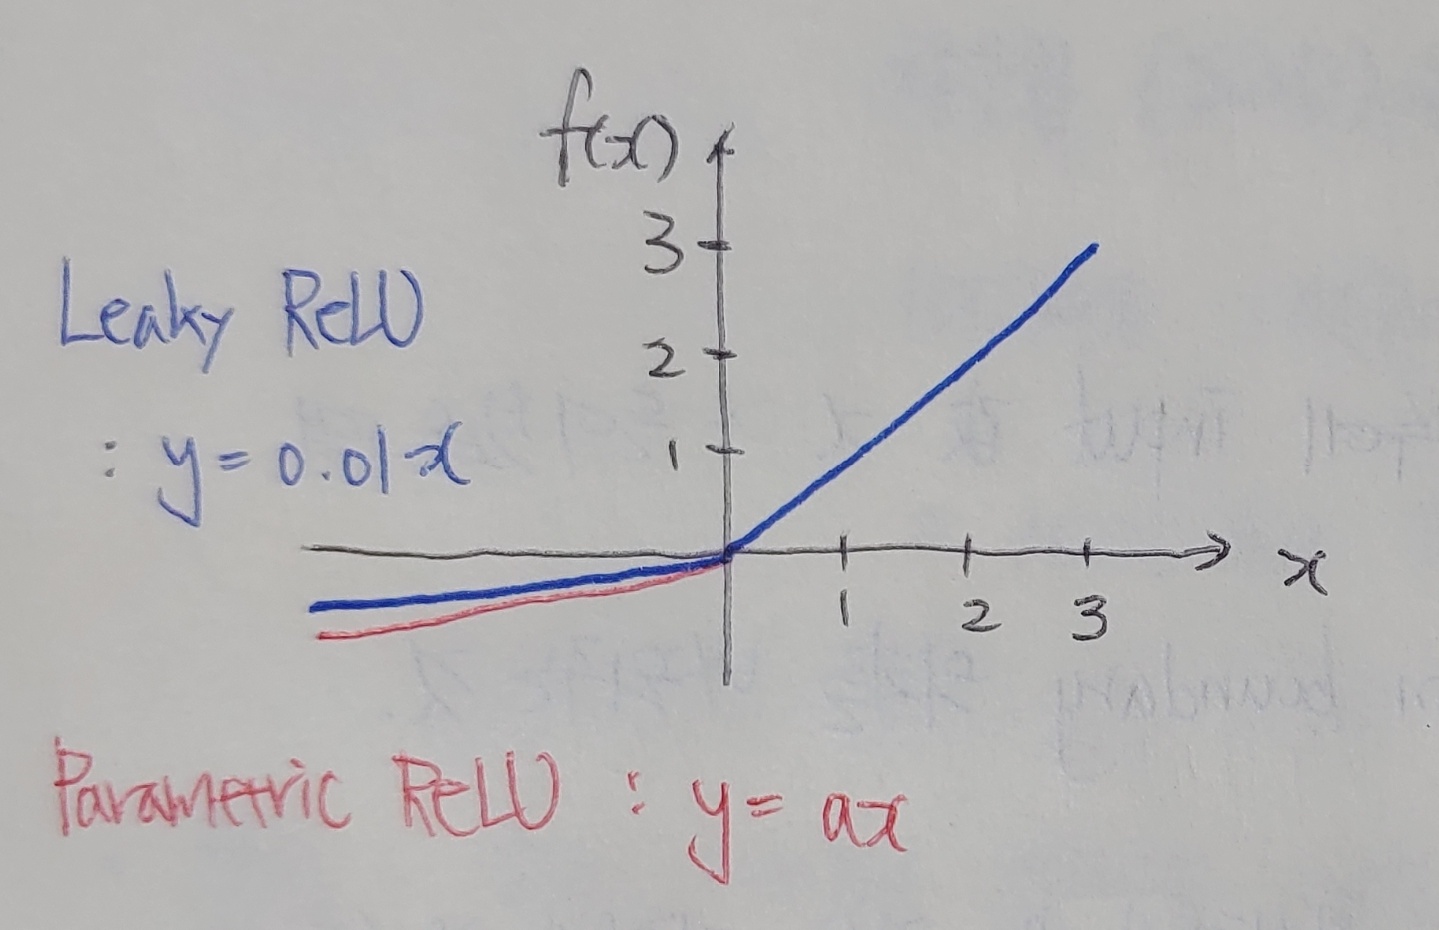 f(x)
3
2
1
Leaky ReLU
: y = 0.01x
x
1 2 3
Parametric ReLU : y = ax